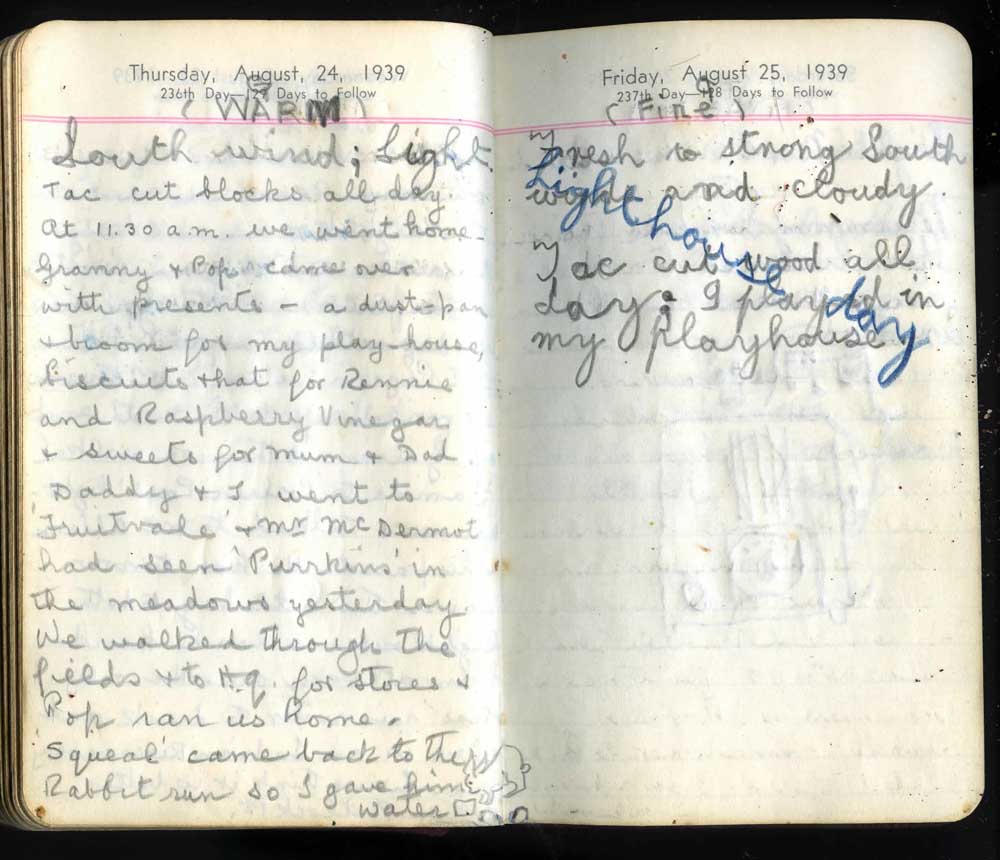 Thursday, August, 24, 1939
236th Day—129 Days to Follow
(WARM)
South wind; Light.
Tac cut blocks all day.
At 11.30 a.m. we went home.
Granny & Pop came over
with presents – a dust-pan
& broom for my play-house,
biscuits that for Rennie
and Raspberry Vinegar
& sweets for Mum & Dad.
Daddy & I went to
'Fruitvale' & Mr McDermot
had seen 'Purrkins' in
the meadows yesterday.
We walked through the
fields & to H.q. for stores &
Pop ran us home.
'Squeal' came back to the
Rabbit run so I gave him
water
Friday, August 25, 1939
237th Day—128 Days to Follow
(Fine)
Fresh to strong South
wind and cloudy.
Tac cut wood all
day; I played in
my playhouse
Light house day